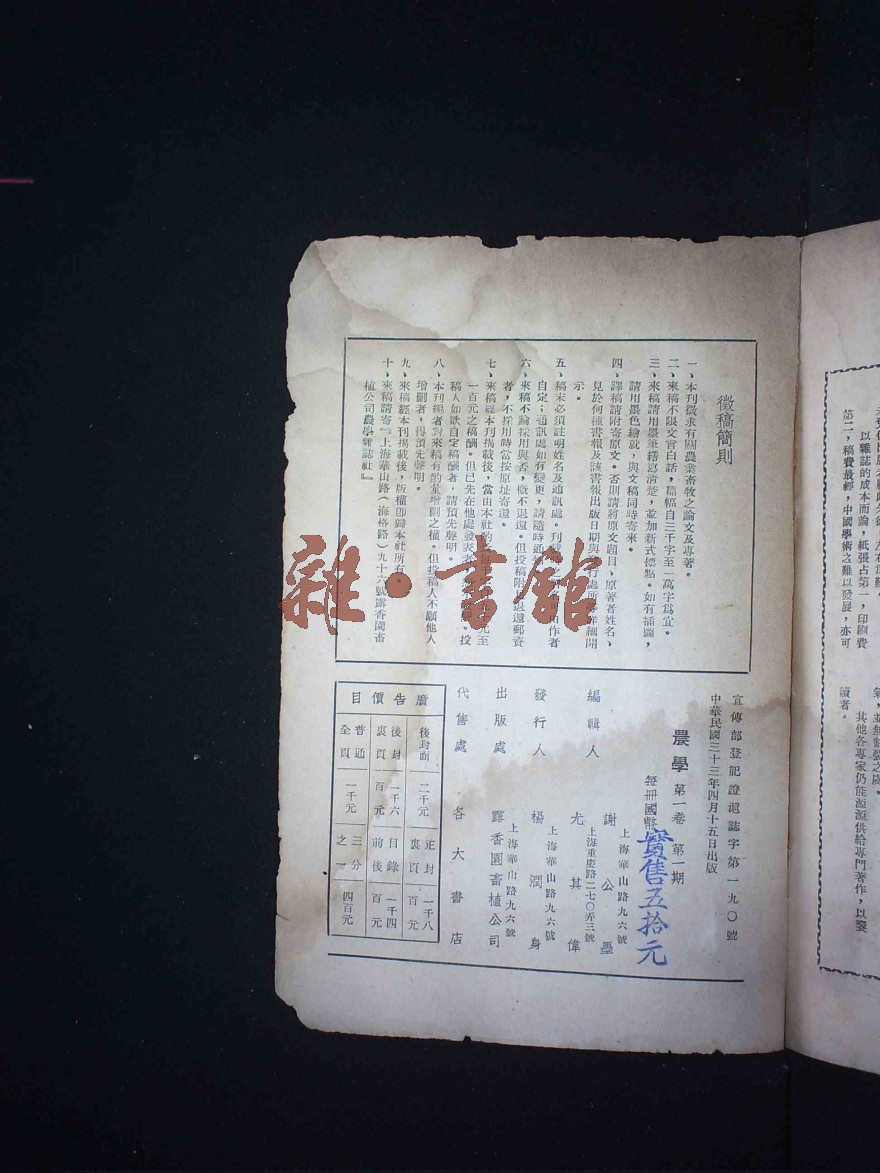 徵稿簡則
一、本刊徵求有關農業畜牧之論文及專著。
二、來稿不限文言白話，篇幅自三千字至一萬字爲宜。
三、來稿請用墨筆繕寫清楚，並加新式標點。如有插圖，
請用墨色繪就，與文稿同時寄來。
四、譯稿請附寄原文。否則請將原文題目，原著者姓名，
見於何種書報及該書報出版日期與行處所詳細開
示。
五、稿末必須註明姓名及通訊處。刊由作者
自定；通訊處如有變更，請隨時通
六、來稿不論採用與否，概不退還。但投稿附退還郵資
者，不採用時當按原址寄還。
七、來稿經本刊揭載後，當由本社元至
一百元之稿酬。但已先在他處發表者投
稿人如欲自定稿酬者，請預先聲明。
八、本刊編者對來稿有酌量增删之權。但投稿人不願他人
增删者，得預先聲明。
九、來稿經本刊揭載後，版權卽歸本社所有。
十、來稿請寄『上海華山路（海格路）九十六號露香園畜
植公司農學雜誌社』
宣傳部登記證滬誌字第一九〇號
中華民國三十三年四月十五日出版
農學 第一卷 第一期
每册國幣 實售五拾元
編輯人 謝公墨
上海華山路九六號
尤其偉
上海重慶路二七〇弄三號
發行人 楊潤身
上海華山路九六號
出版處 露香園畜植公司
上海華山路九六號
代售處 各大書店
廣告價目
後封面 二千元 正封裏頁 一千八百元
後封裏頁 一千六百元 目錄前後 一千四百元
普通全頁 一千元 三分之一 四百元
以雜誌的成本而論，紙張占第一，印刷費
第二，稿費最輕，中國學術之難以發展，亦可
其他各專家仍能源源供給專門著作，以饗
讀者。
雜·書館